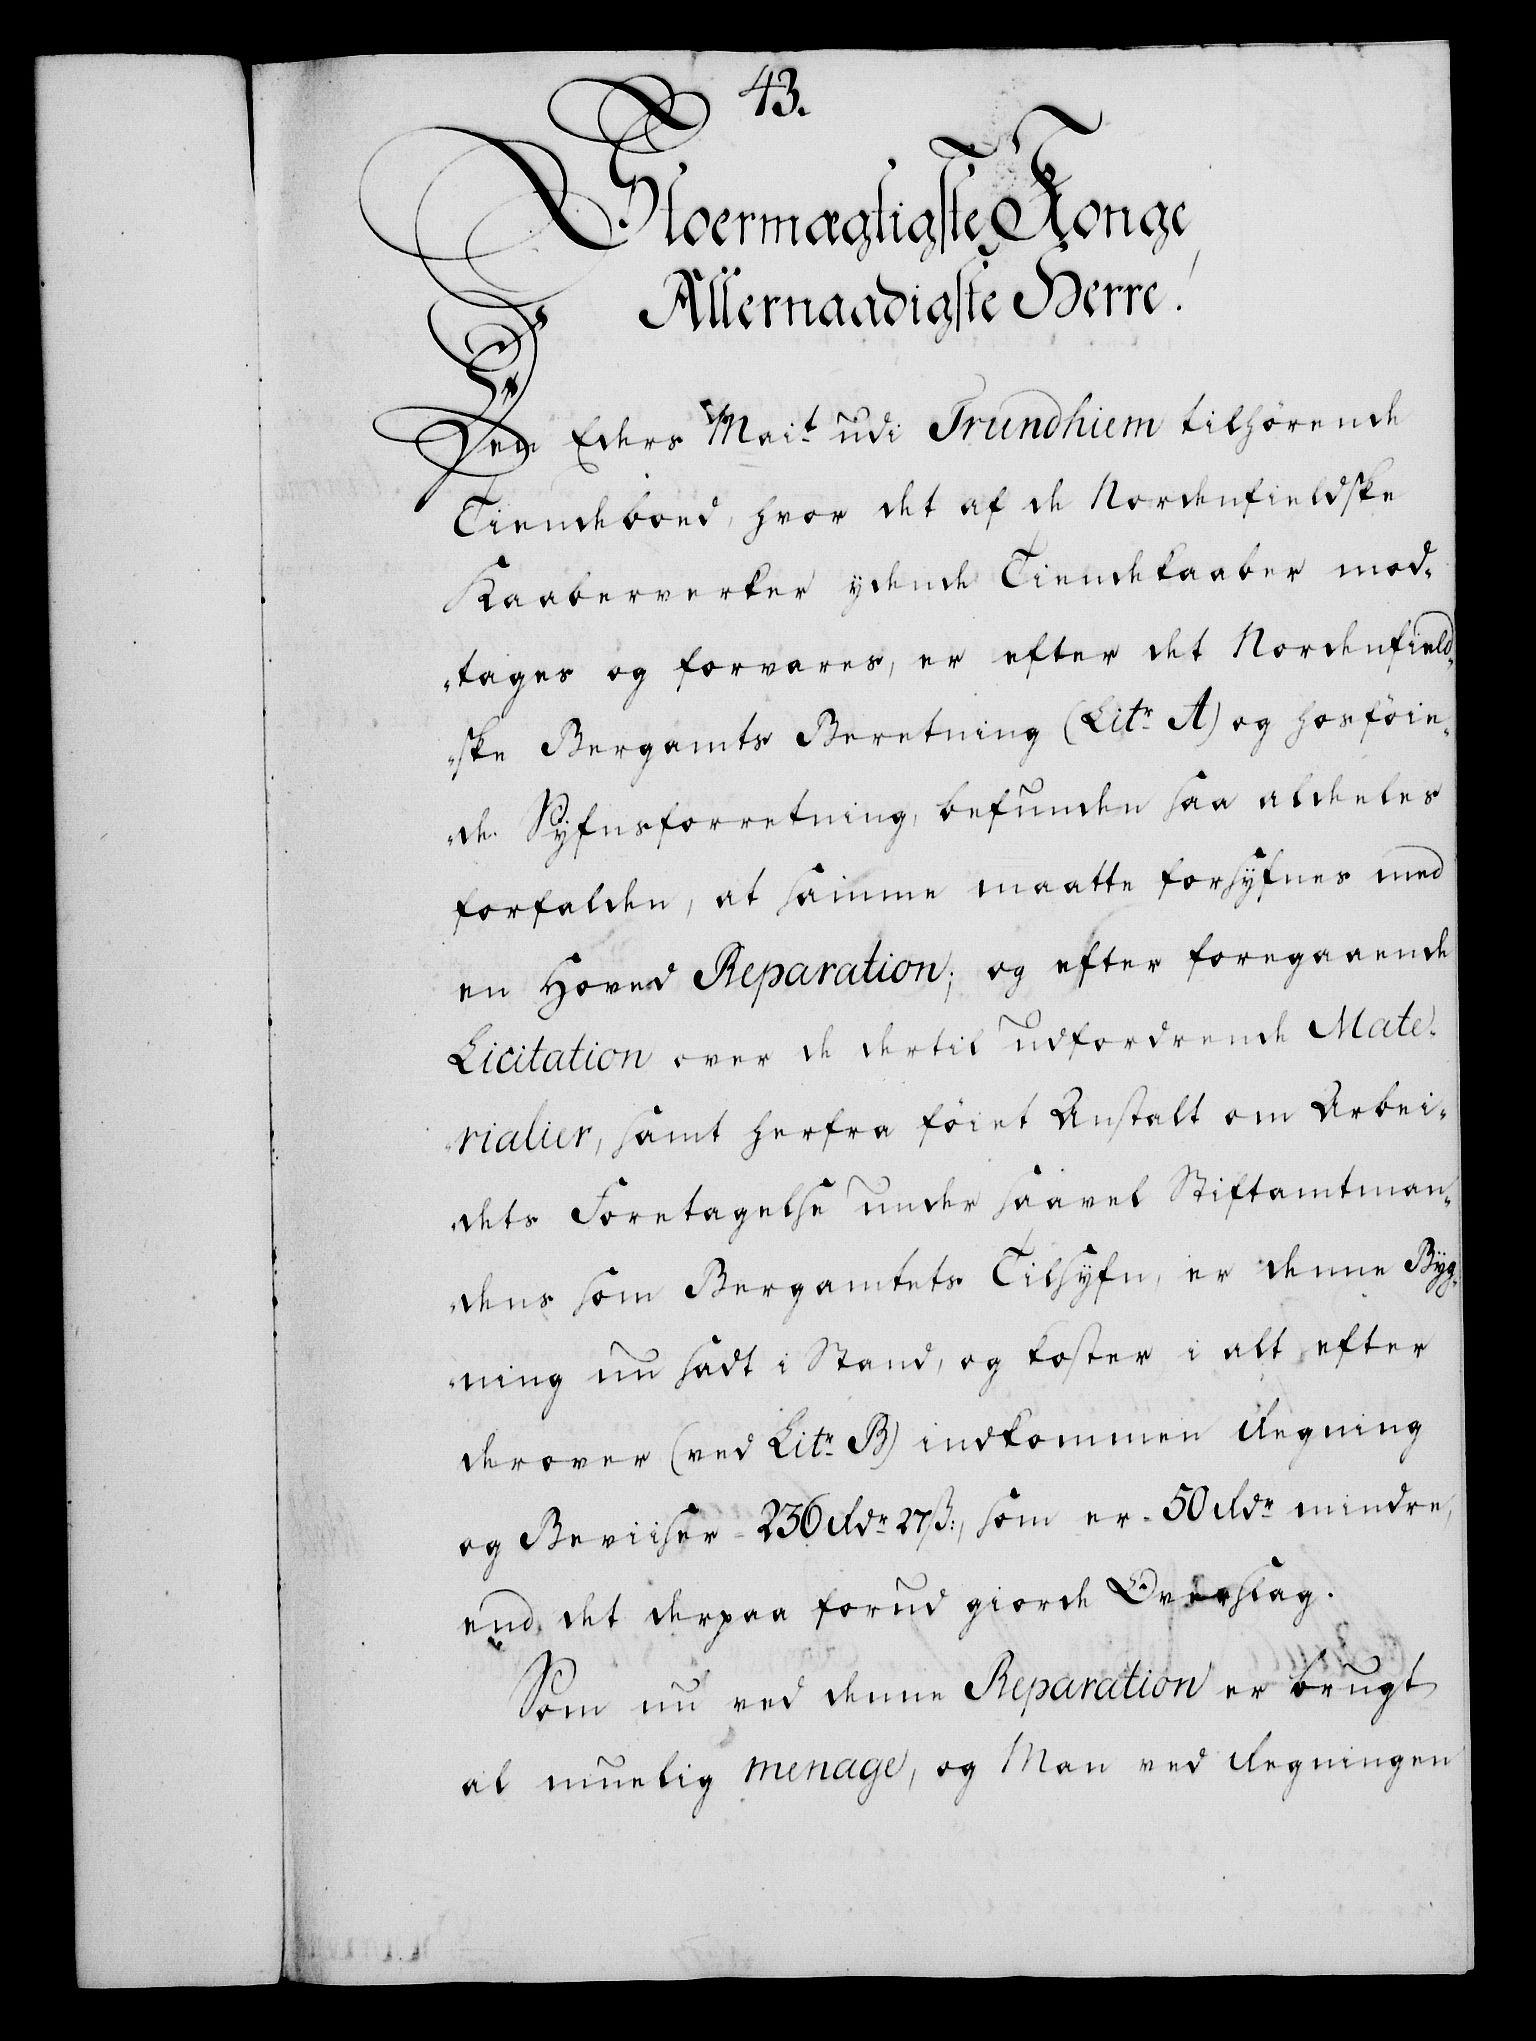 43.
Stoermægtigste Konge,
Allernaadigste Herre!
Den Eders Mai.t udi Trundhiem tilhørende
Tiendeboed, hvor det af de Nordenfieldske
Kaaberverker ÿdende Tiendekaaber mod-
-tages og forvares, er efter det Nordenfield-
-ske Bergamts Beretning (Litr. A) og hosföien-
-de Sÿfnsforretning, befunden saa aldeles
forfalden, at samme maatte forsÿfnes med
en Hoved Reparation; og efter foregaaende
Licitation over de dertil udfordrende Mate-
-rialier, samt herfra föiet Anstalt om Arbei-
-dets Foretagelse under saavel Stiftamtman-
-dens som Bergamtets Tilsÿfn, er denne Byg-
-ning nu sadt i Stand, og koster i alt efter
derover (ved Litr. B) indkommen Regning
og Beviiser - 236 Rdr. 27 ß:, som er - 50 Rdr. mindre,
end det derpaa forud giorde Overslag.
Som nu ved denne Reparation er brugt
al muelig menage, og Man ved Regningen